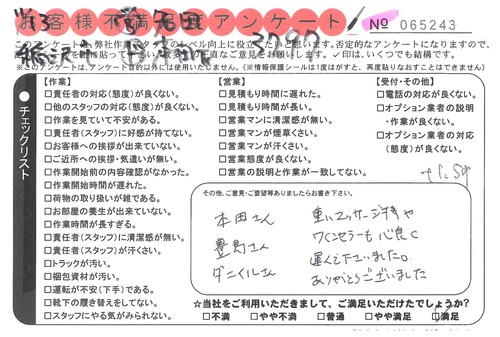 お客様不満足度アンケート
No 065243
このアンケートは、弊社作業スタッフのレベル向上に役立てたいと思います。否定的なアンケートになりますので、
※このアンケートは、アンケート目的以外には使用いたしません。(※情報保護シールは1度はがすと、再度貼りなおすことはできません)
チェックリスト
【作業】
□責任者の対応(態度)が良くない。
□他のスタッフの対応(態度)が良くない。
□作業を見ていて不安がある。
□責任者(スタッフ)に好感が持てない。
□お客様への挨拶が出来ていない。
□ご近所への挨拶・気遣いが無い。
□作業開始前の内容確認がなかった。
□作業開始時間が遅れた。
□荷物の取り扱いが雑である。
□お部屋の養生が出来ていない。
□作業時間が長すぎる。
□責任者(スタッフ)に清潔感が無い。
□責任者(スタッフ)が汗くさい。
□トラックが汚い。
□梱包資材が汚い。
□運転が不安(下手)である。
□靴下の履き替えをしてない。
□スタッフにやる気がみられない。
【営業】
□見積もり時間に遅れた。
□見積もり時間が長い。
□営業マンに清潔感が無い。
□営業マンが煙草くさい。
□営業マンが汗くさい。
□営業態度が良くない。
□営業の説明と作業が一致してない。
【受付・その他】
□電話の対応が良くない。
□オプション業者の説明
・作業が良くない。
□オプション業者の対応
(態度)が良くない。
その他、ご意見・ご要望等ありましたらお書き下さい。
本田さん
豊島さん
ダニイルさん
重いエッサージチェアや
ワインセラーも心良く
運んで下さいました。
ありがとうございました
☆当社をご利用いただきまして、ご満足いただけたでしょうか?
□不満 □やや不満 □普通 □やや満足 □満足